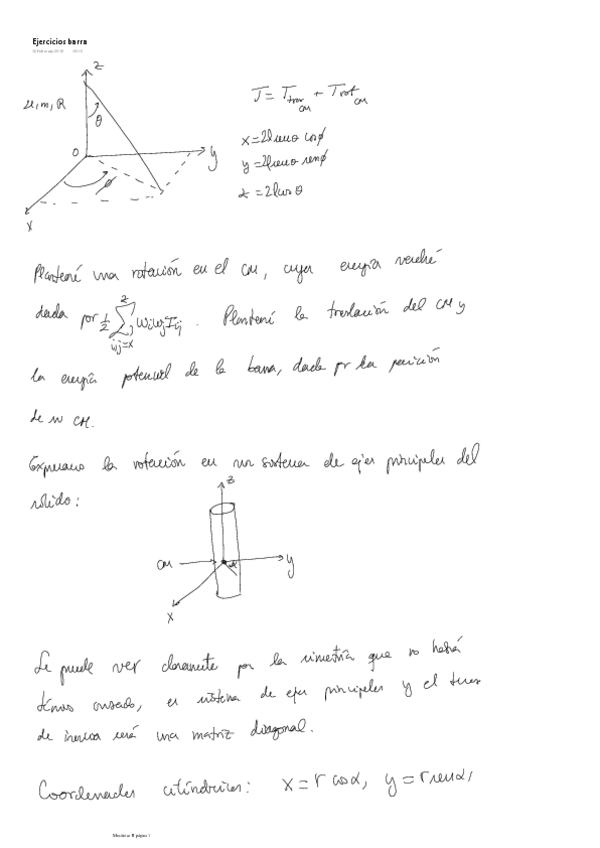 Ejercicios barra
z
μ, m, R
θ
O
y
φ
x
T = T tras CM + T rot CM
x = 2l sen θ cos φ
y = 2l sen θ sen φ
z = 2l cos θ
Plantearé una rotación en el CM, cuya energía vendrá
dada por 1/2 Σ_{i,j=x}^{z} ω_i ω_j I_ij . Plantearé la traslación del CM y
la energía potencial de la barra, dada por la posición
de su CM.
Expresamos la rotación en un sistema de ejes principales del
sólido:
z
CM
α
y
x
Se puede ver claramente por la simetría que no habrá
términos cruzados, es sistema de ejes principales y el tensor
de inercia será una matriz diagonal.
Coordenadas cilíndricas: x = r cos α, y = r sen α,
Mecánica II página 1